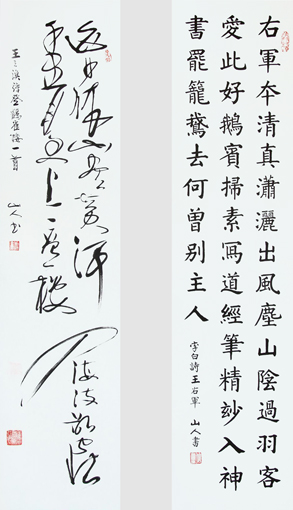 右軍夲清真瀟灑出風塵山陰過羽客
愛此好鵝賓掃素冩道經筆精妙入神
書罷籠鵞去何曽別主人
李白詩王右軍 山人書
白日依山盡黃河入海流欲窮
千里目更上一層樓
王之渙詩登鸛雀樓一首
山人書